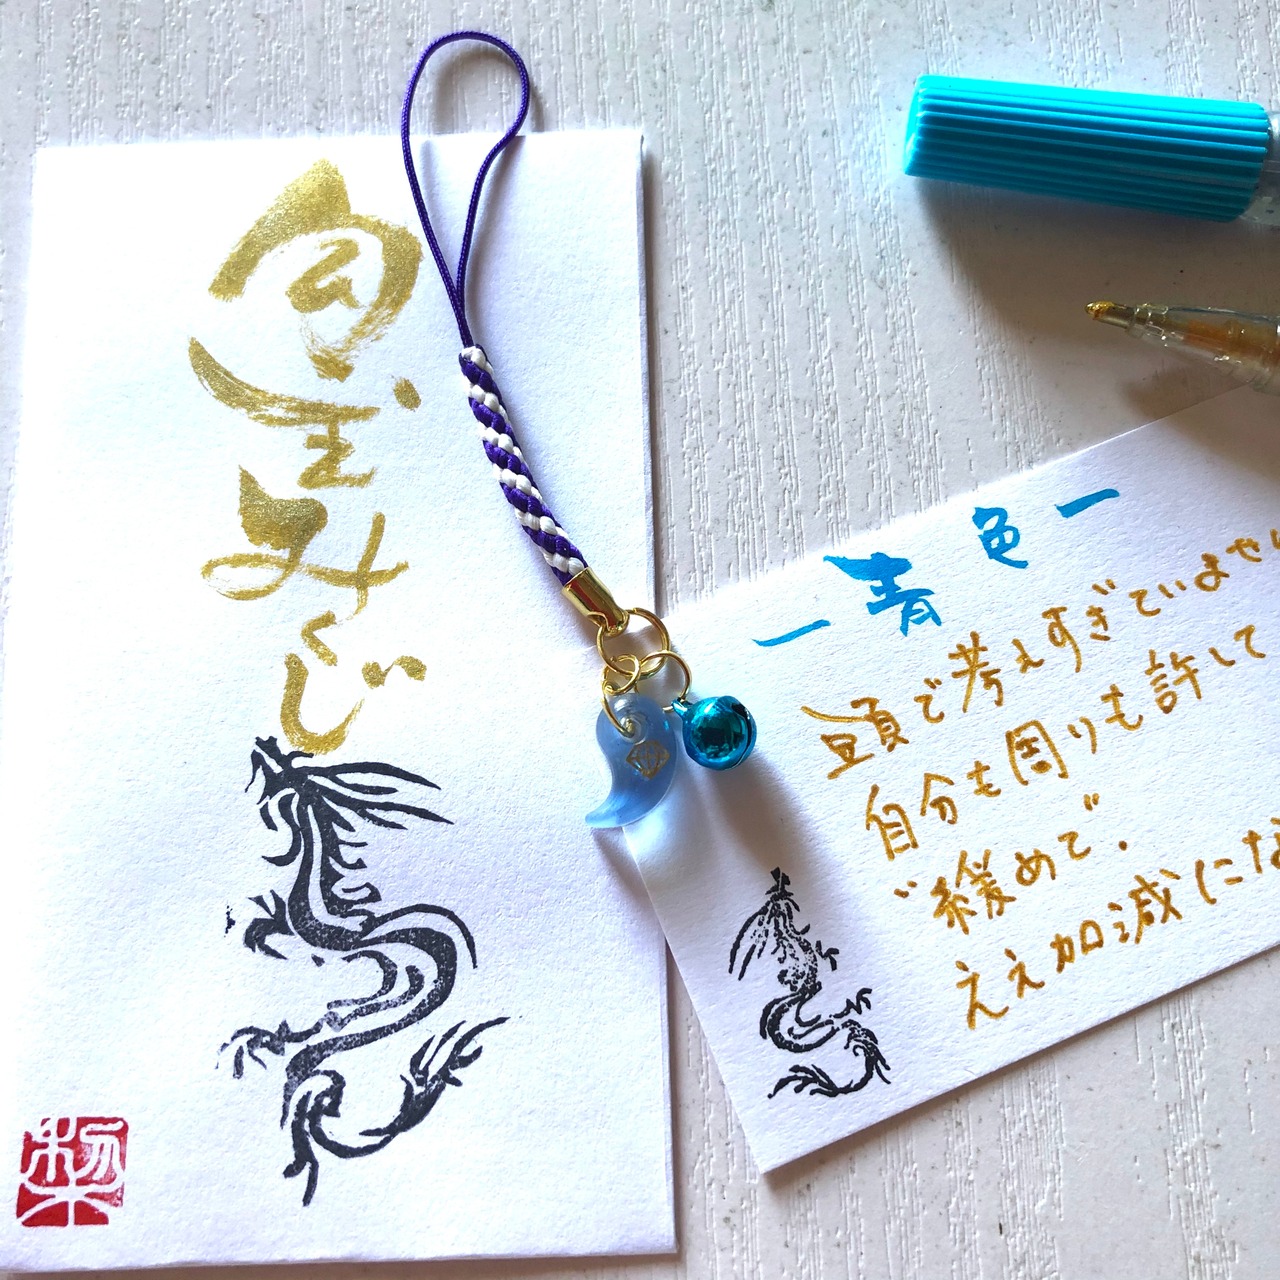 勾玉みくじ
ー青色ー
頭で考えすぎていませ
自分も周りも許して
“緩めて”
ええ加減にな